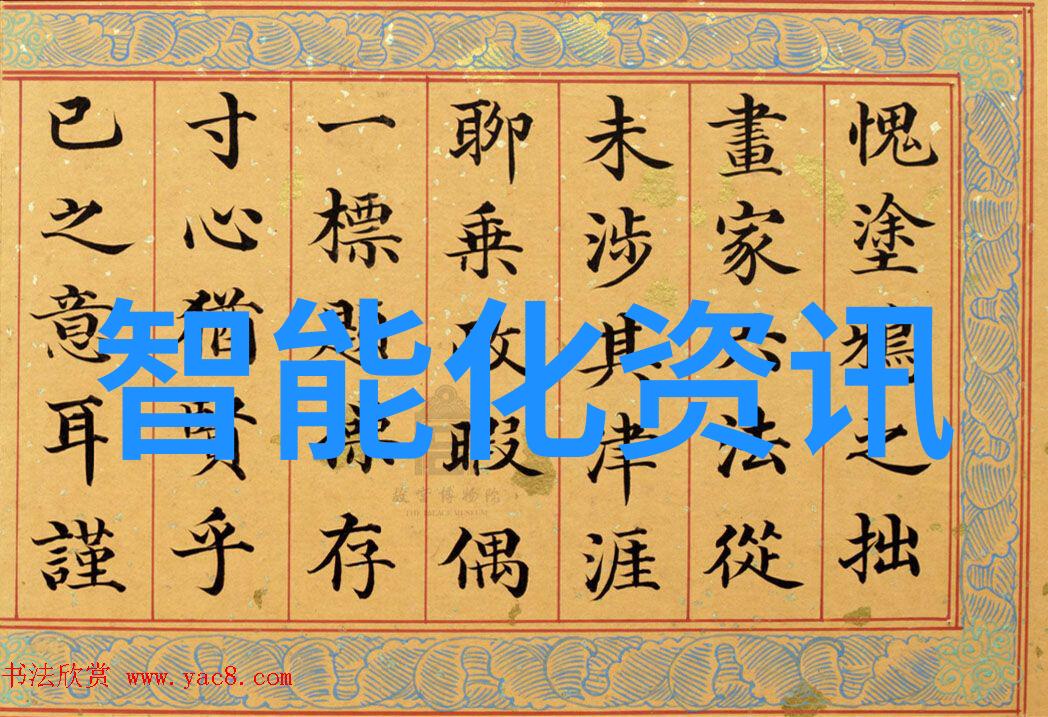 愧塗鴉之拙
畫家法從
未涉其津涯
聊乘政暇偶
一標題存
寸心猶賢乎
已之意耳謹
智能化资讯
故宫博物院
THE PALACE MUSEUM
书法欣赏 www.yac8.com